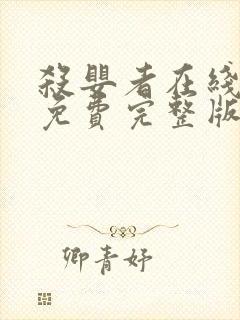 殺嬰者在线
免費完整版
卿青妤